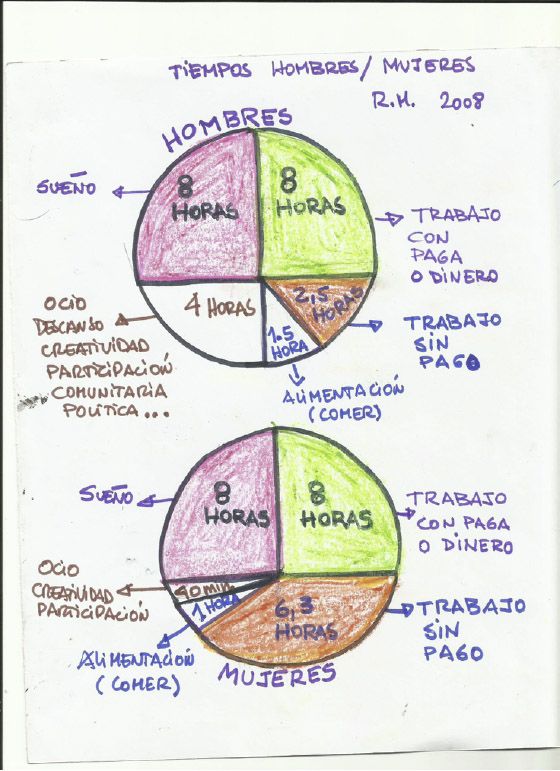 TIEMPOS HOMBRES/MUJERES
R.M. 2008
HOMBRES
8
HORAS
8
HORAS
SUEÑO
TRABAJO
CON
PAGA
O DINERO
4 HORAS
2,5
HORAS
1.5
HORA
OCIO
DESCANSO
CREATIVIDAD
PARTICIPACIÓN
COMUNITARIA
POLITICA...
TRABAJO
SIN
PAGO
ALIMENTACIÓN
(COMER)
8
HORAS
8
HORAS
SUEÑO
TRABAJO
CON PAGA
O DINERO
OCIO
CREATIVIDAD
PARTICIPACIÓN
40 min
1 HORA
6,3
HORAS
TRABAJO
SIN
PAGO
ALIMENTACIÓN
(COMER)
MUJERES